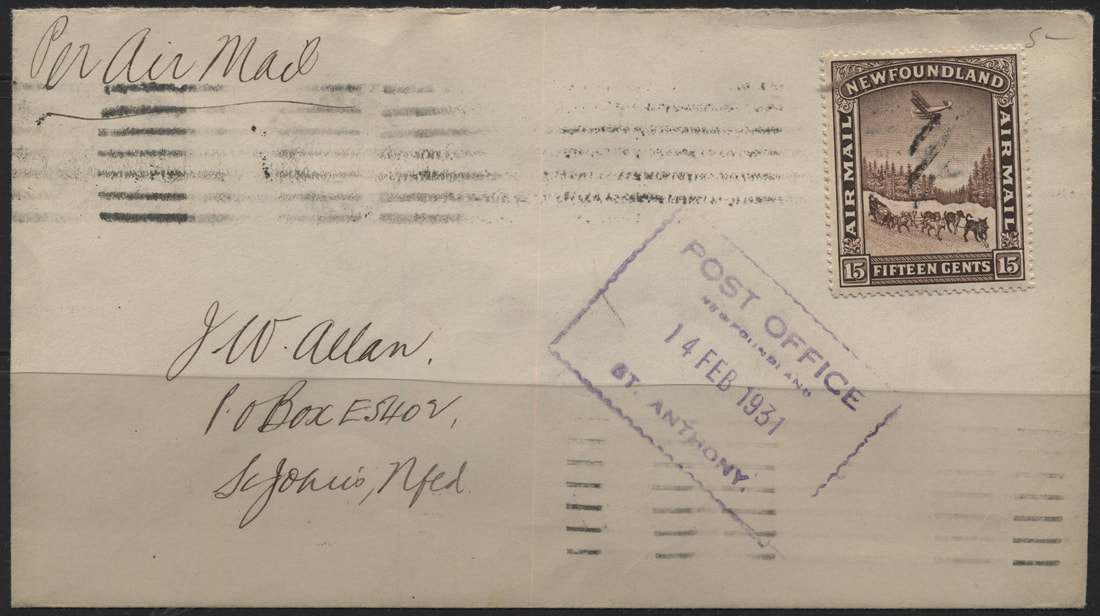 Per Air Mail
5-
NEWFOUNDLAND
AIR MAIL
AIR MAIL
15 FIFTEEN CENTS 15
POST OFFICE
NEWFOUNDLAND
14 FEB 1931
ST. ANTHONY.
J. W. Allan.
P.O Box E5402,
St John's, Nfld.